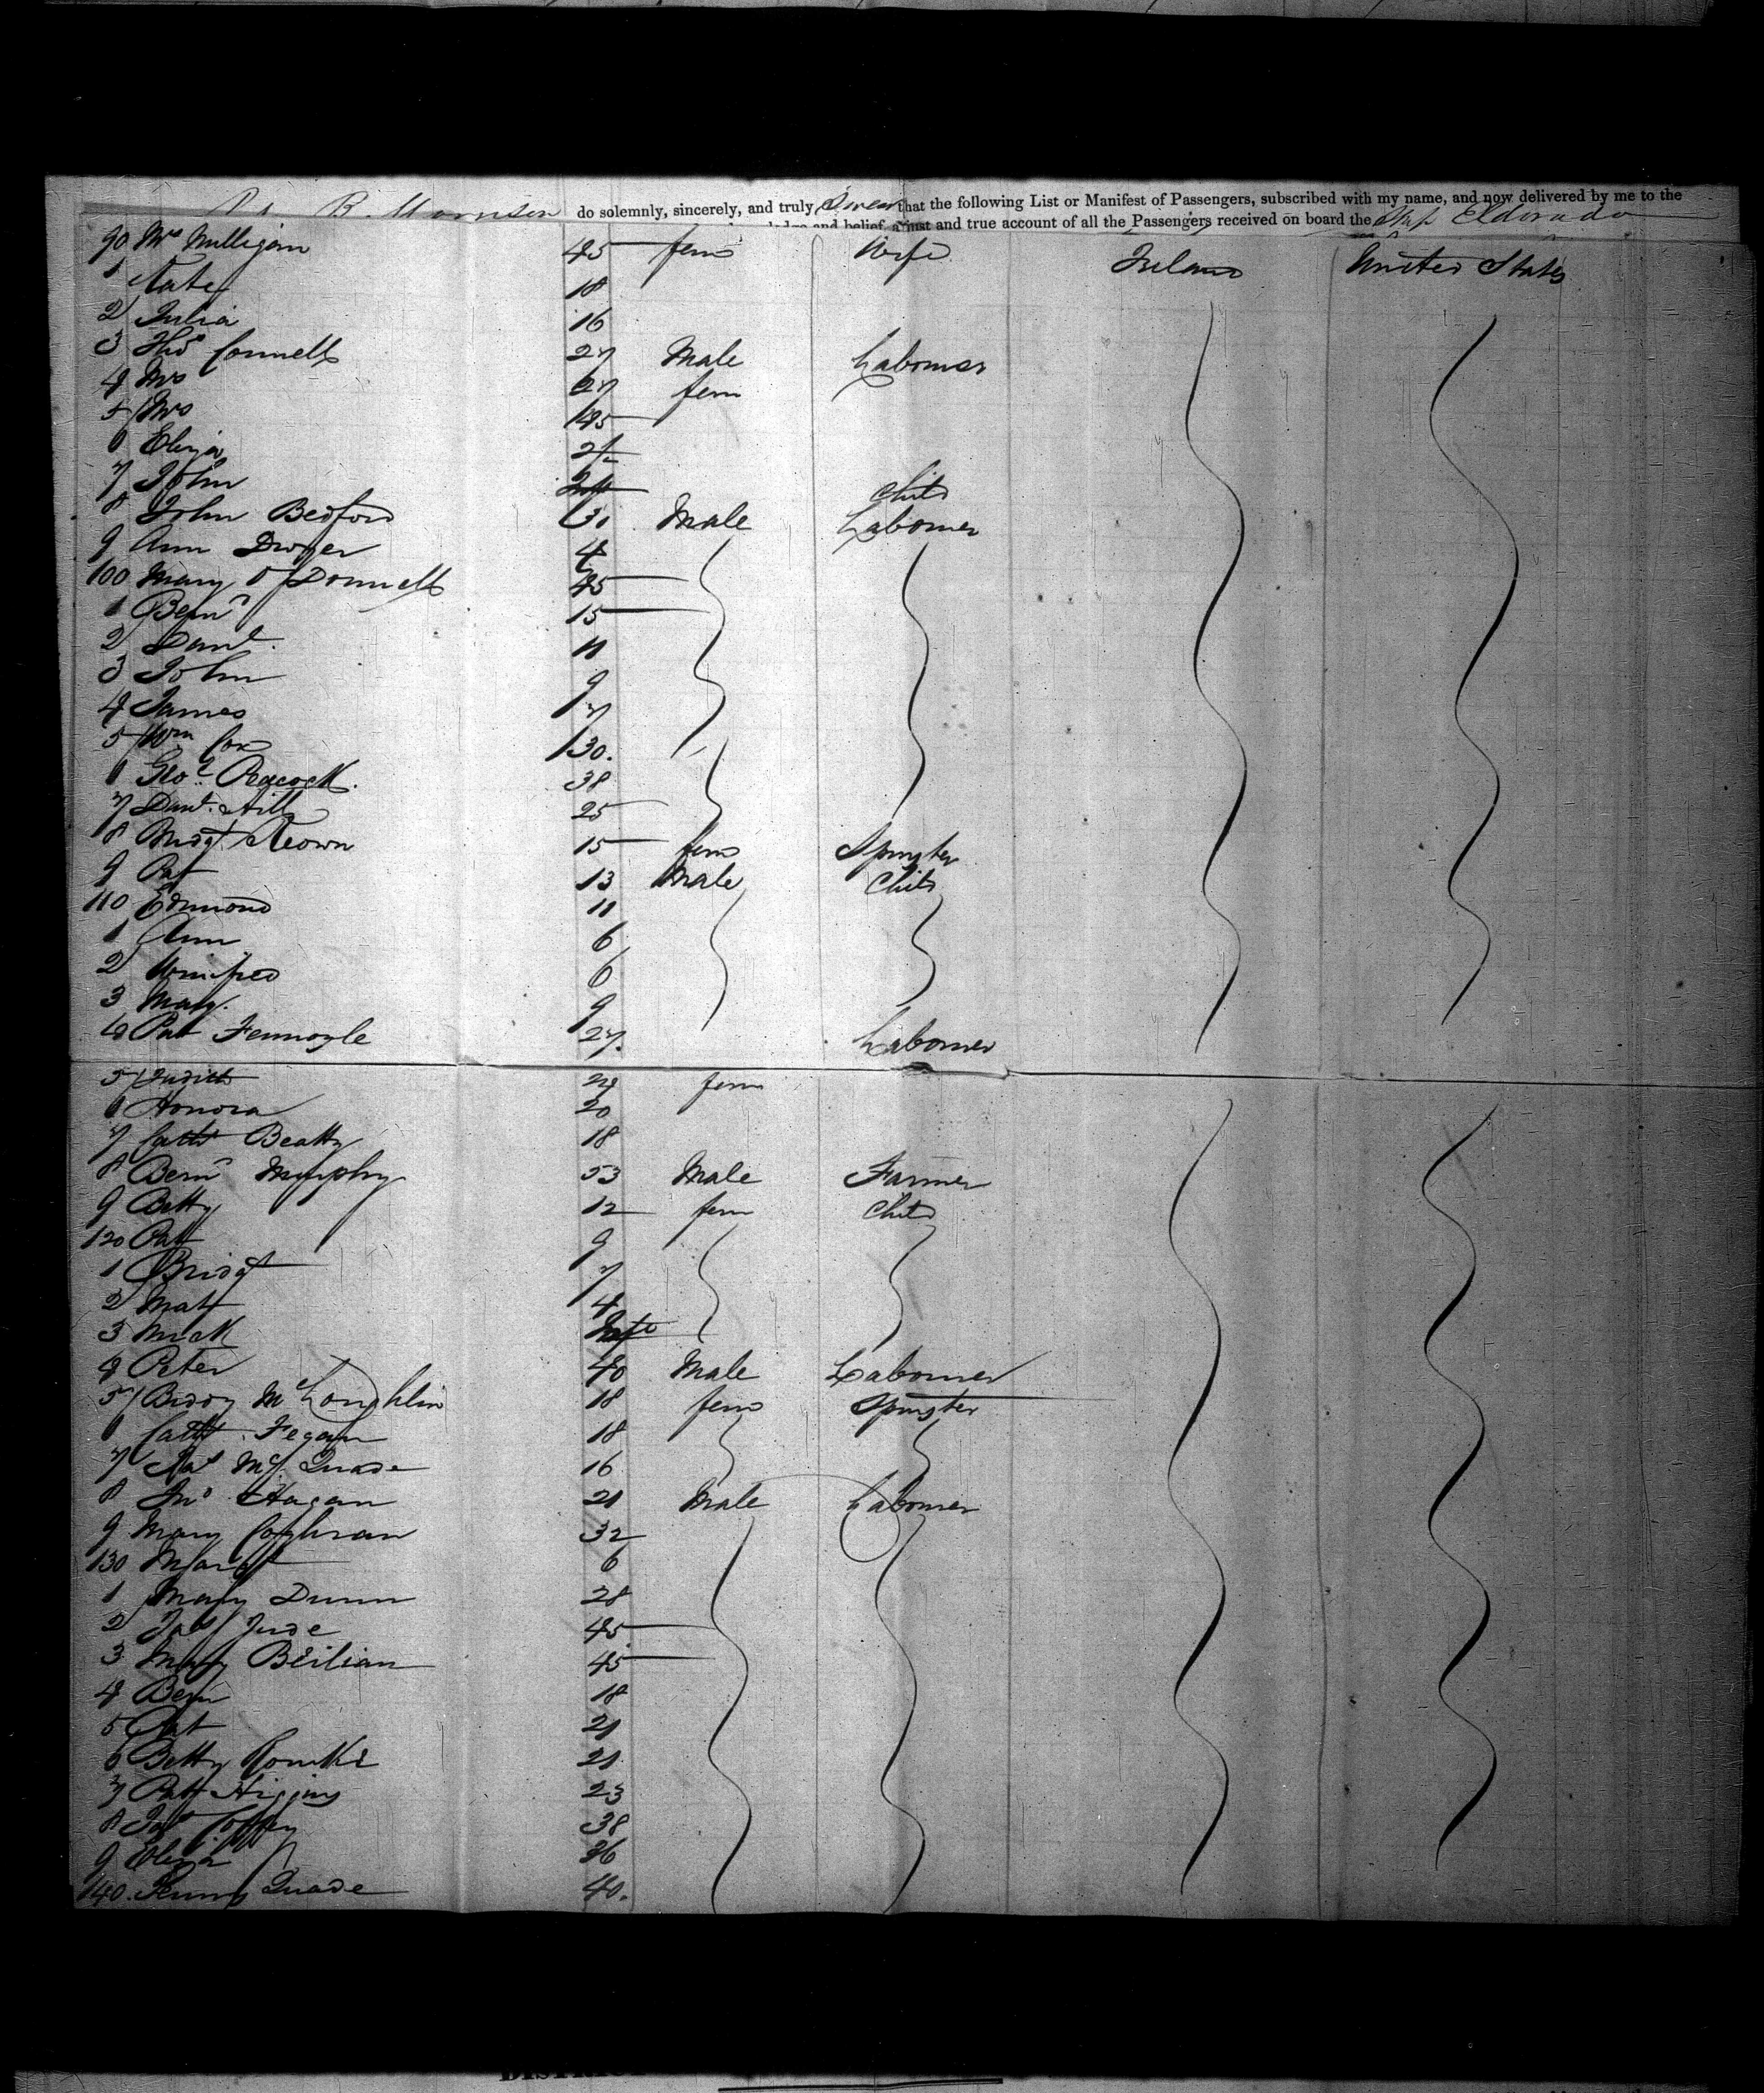 B. Morrison do solemnly, sincerely, and truly Swear that the following List or Manifest of Passengers, subscribed with my name, and now delivered by me to the
and belief, a just and true account of all the Passengers received on board the Ship Eldorado
90 Mrs Mulligan 45 fem Wife Ireland United States
1 Kate 18
2 Julia 16
3 Thos Connell 27 Male Labourer
4 Mrs 27 fem
5 Mrs 45
6 Eliza 2/
7 John Child
8 John Bedford 31 Male Labourer
9 Ann Dwyer 4
100 Mary O'Donnell 45
1 Bernd 15
2 Danl. 11
3 John 9
4 James 7
5 Wm Cox 30.
6 Geo. Peacock. 38
7 Danl. Hill 25
8 Bridgt Keown 15 fem Spinster
9 Pat 13 Male Child
110 Edmond 11
1 Ann 6
2 Winifred 6
3 Mary. 9
4 Pat Fennoyle 27. Labourer
5 Judith 24 fem
6 Honora 20
7 Cath Beatty 18
8 Bernd Murphy 53 Male Farmer
9 Betty 12 fem Child
120 Patt 9
1 Bridgt 7
2 Matt 4
3 Mick Inft
4 Peter 40 Male Labourer
5 Biddy McLoughlin 18 fem Spinster
6 Cath. Fegan 18
7 McQuade 16
8 Jno Hagan 21 Male Labourer
9 Mary Coghran 32
130 Margt 6
1 Mary Dunn 28
2 Jas Jude 45
3 Mary Beilian 45
4 Bern 18
5 Pat 21
6 Betty Rourke 21
7 Patt Higgins 23
8 Jas Coffey 38
9 Eliza 36
140. Quade 40.